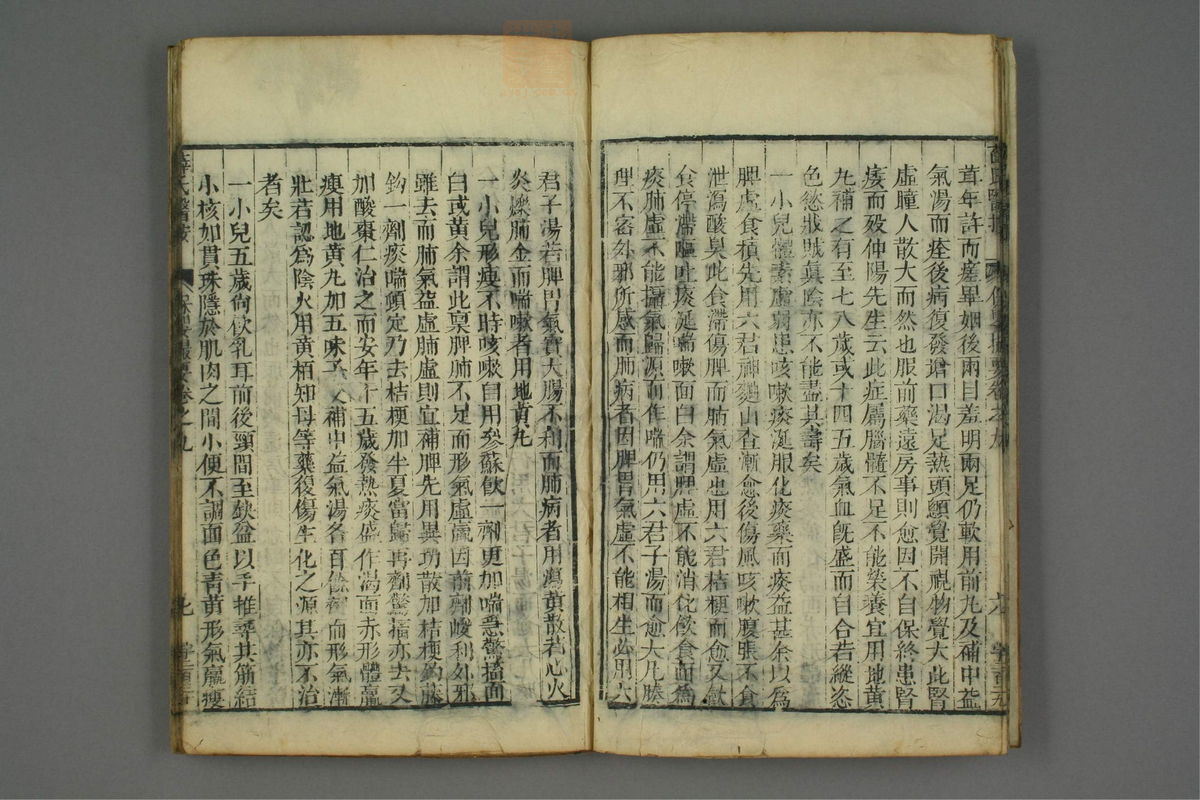 茸年許而痊畢姻後兩目羞明兩足仍軟用前丸及補中益
氣湯而痊後病復發瘡口渴足熱頭顱覺開視物覺大此腎
虛瞳人散大而然也服前藥遠房事則愈因不自保終患腎
痿而殁仲陽先生云此症屬腦髓不足不能榮養宜用地黄
丸補之有至七八歲或十四五歲氣血旣盛而自合若縱恣
色慾戕賊真陰亦不能盡其壽矣
一小兒體素虛弱患咳嗽痰涎服化痰藥而痰益甚余以為
脾虛食積先用六君神麯山查漸愈後傷風咳嗽腹脹不食
泄瀉酸臭此食滯傷脾而肺氣虛也用六君桔梗而愈又飲
食停滯嘔吐痰涎喘嗽面白余謂脾虛不能消化飲食而為
痰肺虛不能攝氣歸源而作喘仍用六君子湯而愈大凡腠
理不密外邪所感而肺病者因脾胃氣虛不能相生必用六
薛氏醫按
保嬰撮要卷之九
君子湯若脾胃氣實大腸不利而肺病者用瀉黄散若心火
炎爍肺金而喘嗽者用地黄丸
一小兒形瘦不時咳嗽自用參蘇飲一劑更加喘急驚搐面
白或黄余謂此稟脾肺不足而形氣虛羸因前劑峻利外邪
雖去而肺氣益虛肺虛則宜補脾先用異功散加桔梗鈎藤
鈎一劑痰喘頓定乃去桔梗加半夏當歸再劑驚搐亦去又
加酸棗仁治之而安年十五歲發熱痰盛作渴面赤形體羸
瘦用地黄丸加五味子及補中益氣湯各百餘劑而形氣漸
壯若認爲陰火用黄栢知母等藥復傷生化之源其亦不治
者矣
一小兒五歲尚飲乳耳前後頸間至缺盆以手推尋其筋結
小核如貫珠隱於肌肉之間小便不調面色青黄形氣羸瘦
薛氏醫按
保嬰撮要卷之九
九